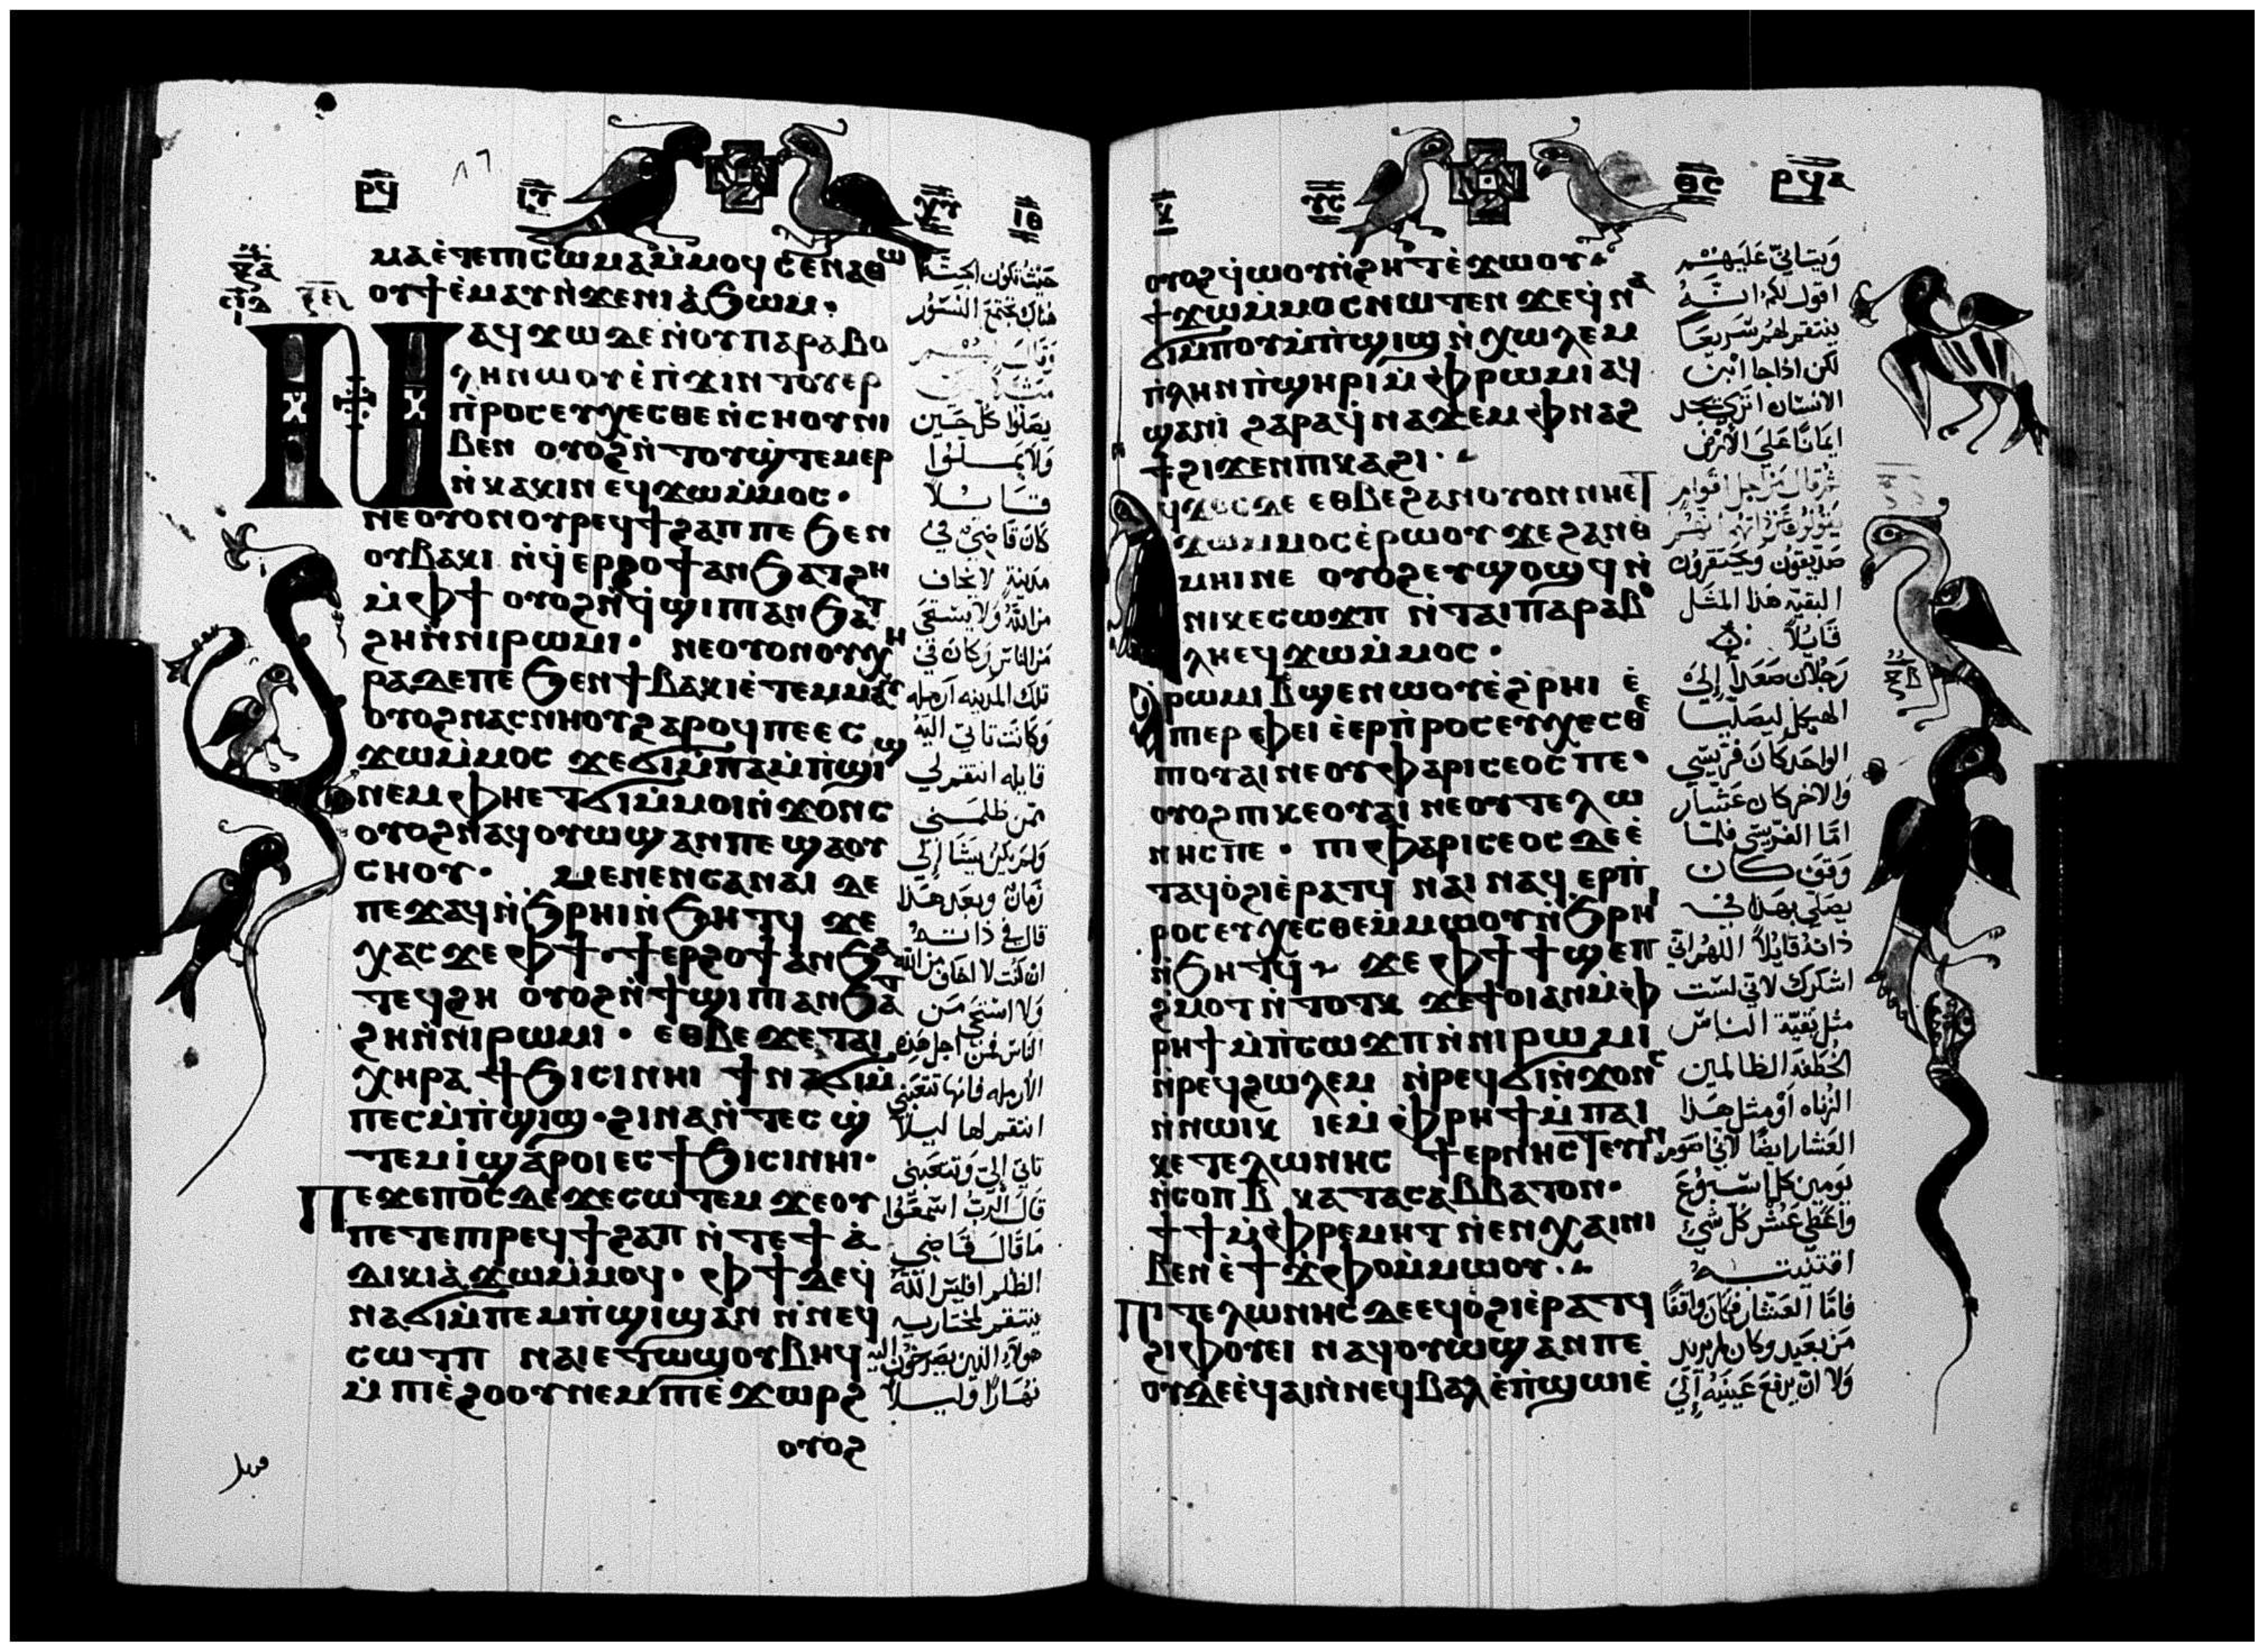 ⲣϥ
ⲙⲁⲉ̀ⲧⲉⲡⲓⲥⲱⲙⲁⲙ̀ⲙⲟϥ ⲥⲉⲛⲁⲑⲱ
ⲟⲩϯⲉ̀ⲙⲁⲩⲛ̀ϫⲉⲛⲓⲁ̀ϧⲱⲙ·
ⲛⲁϥϫⲱⲇⲉⲛ̀ⲟⲩⲡⲁⲣⲁⲃⲟ
ⲗⲏⲛⲱⲟⲩⲉ̀ⲡ̀ϫⲓⲛⲧⲟⲩⲉⲣ
ⲡ̀ⲣⲟⲥⲉⲩⲭⲉⲥⲑⲉⲛ̀ⲥⲏⲟⲩⲛⲓ
ⲃⲉⲛ ⲟⲩⲟϩⲛ̀ⲧⲟⲩϣ̀ⲧⲉⲙⲉⲣ
ⲛ̀ⲕⲁⲕⲓⲛ ⲉϥϫⲱⲙ̀ⲙⲟⲥ·
ⲛⲉⲟⲩⲟⲛⲟⲩⲣⲉϥϯϩⲁⲡⲡⲉ ϧⲉⲛ
ⲟⲩⲃⲁⲕⲓ ⲛ̀ϥ̀ⲉⲣϩⲟϯⲁⲛϧⲁⲧϩⲏ
ⲙ̀ⲫϯ ⲟⲩⲟϩⲛ̀ϥ̀ϣⲓⲡⲓⲁⲛϧⲁⲧ
ϩⲏⲛ̀ⲛⲓⲣⲱⲙⲓ· ⲛⲉⲟⲩⲟⲛⲟⲩⲭⲏ
ⲣⲁⲇⲉⲡⲉ ϧⲉⲛϯⲃⲁⲕⲓⲉ̀ⲧⲉⲙⲙⲁⲩ
ⲟⲩⲟϩⲛⲁⲥⲛⲏⲟⲩϩⲁⲣⲟϥⲡⲉⲉⲥ
ϫⲱⲙ̀ⲙⲟⲥ ϫⲉϭⲓⲙ̀ⲡⲁⲙ̀ⲡ̀ϣⲓϣ
ⲛⲉⲙⲫⲏⲉⲧϭⲓⲙ̀ⲙⲟⲓⲛ̀ϫⲟⲛⲥ
ⲟⲩⲟϩⲛⲁϥⲟⲩⲱϣⲁⲛⲡⲉ ϣⲁⲟⲩ
ⲥⲏⲟⲩ· ⲙⲉⲛⲉⲛⲥⲁⲛⲁⲓ ⲇⲉ
ⲡⲉϫⲁϥⲛ̀ϧⲣⲏⲓⲛ̀ϧⲏⲧϥ ϫⲉ
ⲭⲁⲥ ϫⲉ ⲫϯ·ϯⲉⲣϩⲟϯⲁⲛϧⲁ
ⲧⲉϥϩⲏ ⲟⲩⲟϩⲛ̀ϯϣⲓⲡⲓⲁⲛϧⲁⲧ
ϩⲏⲛ̀ⲛⲓⲣⲱⲙⲓ· ⲉⲑⲃⲉ ϫⲉ ⲧⲁⲓ
ⲭⲏⲣⲁ ϯϧⲓⲥⲓⲛⲏⲓ ϯⲛⲁϭⲓⲙ̀
ⲡⲉⲥⲙ̀ⲡ̀ϣⲓϣ·ϩⲓⲛⲁⲛ̀ⲧⲉⲥϣ̀
ⲧⲉⲙⲓ̀ϣⲁⲣⲟⲓⲉⲥϯϧⲓⲥⲓⲛⲏⲓ·
ⲡⲉϫⲉⲡⲟ̅ⲥ̅ⲇⲉϫⲉⲥⲱⲧⲉⲙ ϫⲉⲟⲩ
ⲡⲉⲧⲉⲡⲓⲣⲉϥϯϩⲁⲡ ⲛ̀ⲧⲉϯⲁ̀
ⲇⲓⲕⲓⲁ̀ϫⲱⲙ̀ⲙⲟϥ· ⲫϯⲇⲉϥ̀
ⲛⲁϭⲓⲙ̀ⲡⲉⲙⲡ̀ϣⲓϣⲁⲛ ⲛ̀ⲛⲉϥ
ⲥⲱⲧⲡ ⲛⲁⲓⲉⲧⲱϣⲟⲩⲃⲏϥ
ⲙ̀ⲡⲓⲉ̀ϩⲟⲟⲩⲛⲉⲙⲡⲓⲉ̀ϫⲱⲣϩ
ⲟⲩⲟϩ
حيث تكون الجثة
هناك تجتمع النسور
يصلوا كل حين
ولا يملوا
قايلا
كان قاضي في
مدينة لا يخاف
من الله ولا يستحي
من الناس وكان في
تلك المدينه ارمله
وكانت تاتي اليه
قايله انتقم لي
ممن ظلمني
ولم يكن يشا إلي
زمان وبعد هذا
قال في ذاته
ان كنت لا اخاف من الله
ولا استحي من
الناس فمن اجل هذه
الارمله فانها تتعبني
انتقم لها ليلا
تاتي إلي وتتعبني
قال الرب اسمعوا
ما قال قاضي
الظلم افليس الله
ينتقم لمختاريه
هولاء الذين يصرخون اليه
نهارا وليلا
ⲣϥⲁ
ⲟⲩⲟϩϥ̀ⲱⲟⲩⲛ̀ϩⲏⲧⲉ̀ϫⲱⲟⲩ·
ϯϫⲱⲙ̀ⲙⲟⲥⲛⲱⲧⲉⲛ ϫⲉϥ̀ⲛⲁ
ϭⲓⲙ̀ⲡⲟⲩⲙ̀ⲡ̀ϣⲓϣ ⲛ̀ⲭⲱⲗⲉⲙ
ⲡ̀ⲗⲏⲛⲡ̀ϣⲏⲣⲓⲙ̀ⲫⲣⲱⲙⲓ ⲁϥ
ϣⲁⲛⲓ̀ ϩⲁⲣⲁϥ̀ⲛⲁϫⲉⲙ ⲫⲛⲁϩ
ϯϩⲓϫⲉⲛⲡⲓⲕⲁϩⲓ·
ⲁϥϫⲟⲥⲇⲉ ⲉⲑⲃⲉϩⲁⲛⲟⲩⲟⲛⲛⲏⲉⲧ
ϫⲱⲙ̀ⲙⲟⲥⲉ̀ⲣⲱⲟⲩ ϫⲉϩⲁⲛⲑ
ⲙⲏⲓⲛⲉ ⲟⲩⲟϩⲉⲩϣⲟϣϥⲛ̀
ⲛⲓⲕⲉⲥⲱϫⲡ ⲛ̀ⲧⲁⲓⲡⲁⲣⲁⲃⲟ
ⲗⲏⲉϥϫⲱⲙ̀ⲙⲟⲥ·
ⲣⲱⲙⲓⲃ̅ϣⲉⲛⲱⲟⲩⲉ̀ϩ̀ⲣⲏⲓ ⲉ̀
ⲡⲓⲉⲣⲫⲉⲓ ⲉ̀ⲉⲣⲡ̀ⲣⲟⲥⲉⲩⲭⲉⲥⲑⲉ
ⲡⲓⲟⲩⲁⲓ ⲛⲉⲟⲩⲫⲁⲣⲓⲥⲉⲟⲥ ⲡⲉ·
ⲟⲩⲟϩⲡⲓⲕⲉⲟⲩⲁⲓ ⲛⲉⲟⲩⲧⲉⲗⲱ
ⲛⲏⲥⲡⲉ· ⲡⲓⲫⲁⲣⲓⲥⲉⲟⲥⲇⲉⲉ̀
ⲧⲁϥⲟ̀ϩⲓⲉ̀ⲣⲁⲧϥ ⲛⲁⲓ ⲛⲁϥ ⲉⲣⲡ̀
ⲣⲟⲥⲉⲩⲭⲉⲥⲑⲉⲙ̀ⲙⲱⲟⲩⲛ̀ϧⲣⲏⲓ
ⲛ̀ϧⲏⲧϥ ϫⲉ ⲫϯ ϯϣⲉⲡ
ϩⲙⲟⲧ ⲛ̀ⲧⲟⲧⲕ ϫⲉϯⲟⲓⲁⲛⲙ̀ⲫ
ⲣⲏϯⲙ̀ⲡ̀ⲥⲱϫⲡⲛ̀ⲛⲓⲣⲱⲙⲓ
ⲛ̀ⲣⲉϥϩⲱⲗⲉⲙ ⲛ̀ⲣⲉϥϭⲓⲛ̀ϫⲟⲛⲥ
ⲛ̀ⲛⲱⲓⲕ ⲓⲉⲙ̀ ⲫⲣⲏϯⲙ̀ⲡⲁⲓ
ⲕⲉⲧⲉⲗⲱⲛⲏⲥ ϯⲉⲣⲛⲏⲥⲧⲉⲩⲓⲛ
ⲛ̀ⲥⲟⲡⲃ̅ ⲕⲁⲧⲁⲥⲁⲃⲃⲁⲧⲟⲛ·
ϯϯⲙ̀ⲫⲣⲉⲙⲏⲧ ⲛ̀ⲉⲛⲭⲁⲓⲛⲓ
ⲃⲉⲛ ⲉ̀ϯϫ̀ⲫⲟⲙ̀ⲙⲱⲟⲩ·
ⲡⲓⲧⲉⲗⲱⲛⲏⲥ ⲇⲉⲉϥⲟ̀ϩⲓⲉ̀ⲣⲁⲧϥ
ϩⲓⲫⲟⲩⲉⲓ ⲛⲁϥⲟⲩⲱϣⲁⲛⲡⲉ
ⲟⲩⲇⲉⲉ̀ϥⲁⲓⲛ̀ⲛⲉϥⲃⲁⲗⲉ̀ⲡ̀ϣⲱⲓⲉ̀
ويتانى عليهم
اقول لكم انه
ينتقم لهم سريعا
لكن اذا جا ابن
الانسان اترى يجد
ايمانا على الارض
ثم قال من اجل اقوام
صديقون ويحتقرون
البقيه هذا المثل
قايلا
رجلان صعدا إلى
الهيكل ليصليا
الواحد كان فريسي
والاخر كان عشار
اما الفريسي فلما
وقف كان
يصلي بهذا في
ذاته قايلا اللهم اني
اشكرك لاني لست
مثل بقية الناس
الخطفة الظالمين
الزناه او مثل هذا
العشار ايضا لاني اصوم
يومين كل اسبوع
واعطي عشر كل شي
اقتنيته
فاما العشار فكان واقفا
من بعيد وكان لم يريد
ولا ان يرفع عينيه إلى